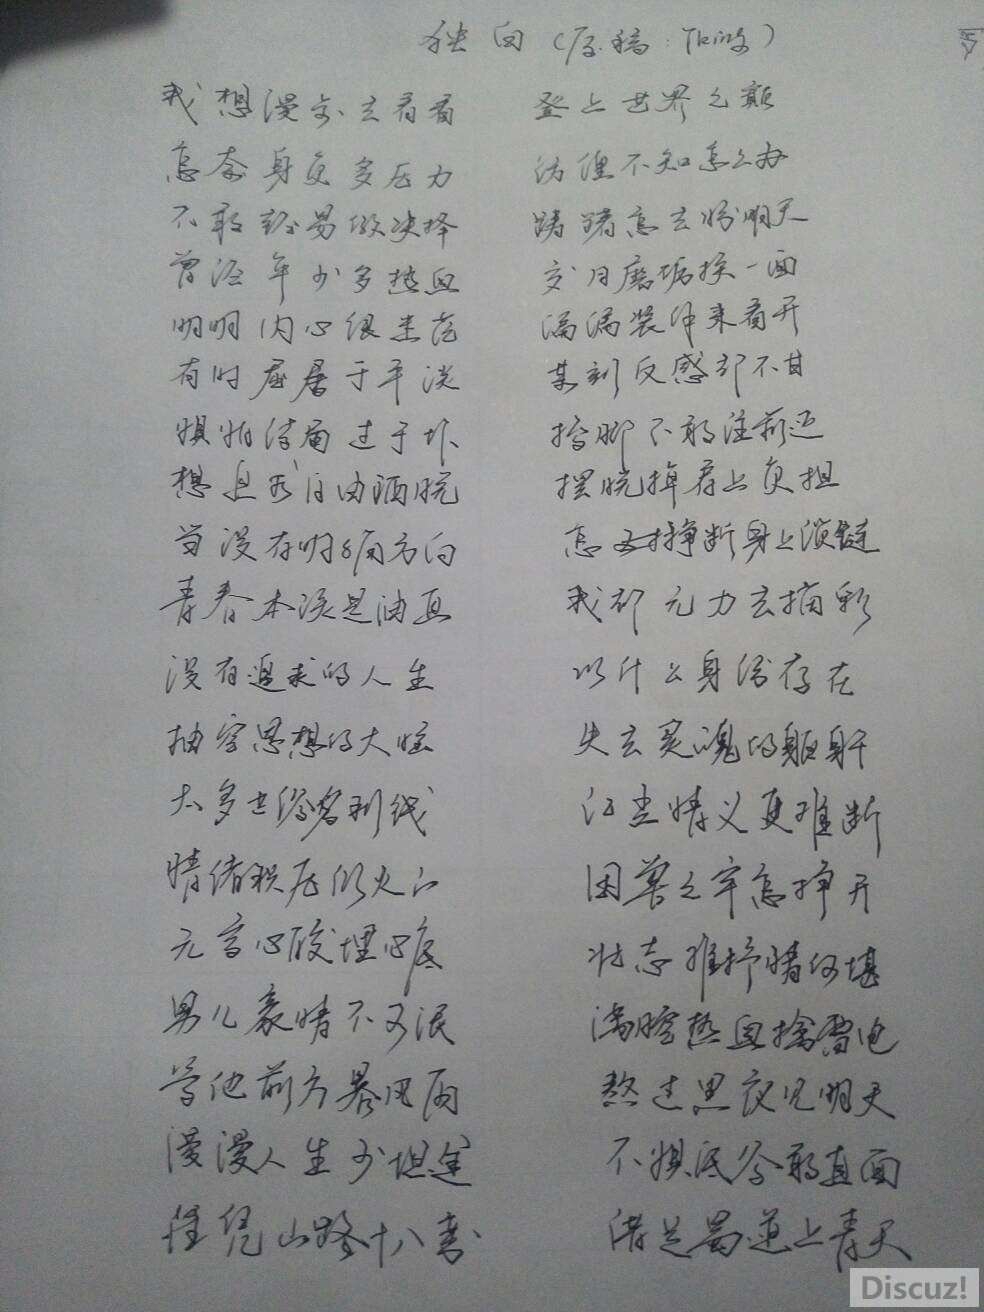 独白（原稿：Thing）
我想漫步去看看 登上世界之巅
怎奈身负多压力 伪俚不知怎么办
不敢轻易做决择 踌躇怎去盼明天
曾经年少多热血 岁月磨垢换一面
明明内心很悲苍 满满装作来看开
有时屈居于平淡 某刻反感却不甘
惧怕结局过于坏 抬脚不敢往前迈
想思念自由洒脱 摆脱掉肩上负担
当没有明确方向 怎么挣断身上锁链
青春本该是油画 我却无力去描彩
没有追求的人生 以什么身份存在
抽空思想的大脑 失去灵魂的躯干
太多世俗名利线 江尘情义更难断
情绪积压似火山 困兽之牢怎挣开
无言心酸埋心底 壮志难抒情何堪
男儿豪情不可泯 满腔热血擒雷电
管他前方暴风雨 熬过黑夜见明天
漫漫人生少坦途 不惧低谷敢直面
任凭山路十八弯 借是蜀道上青天
Discuz!